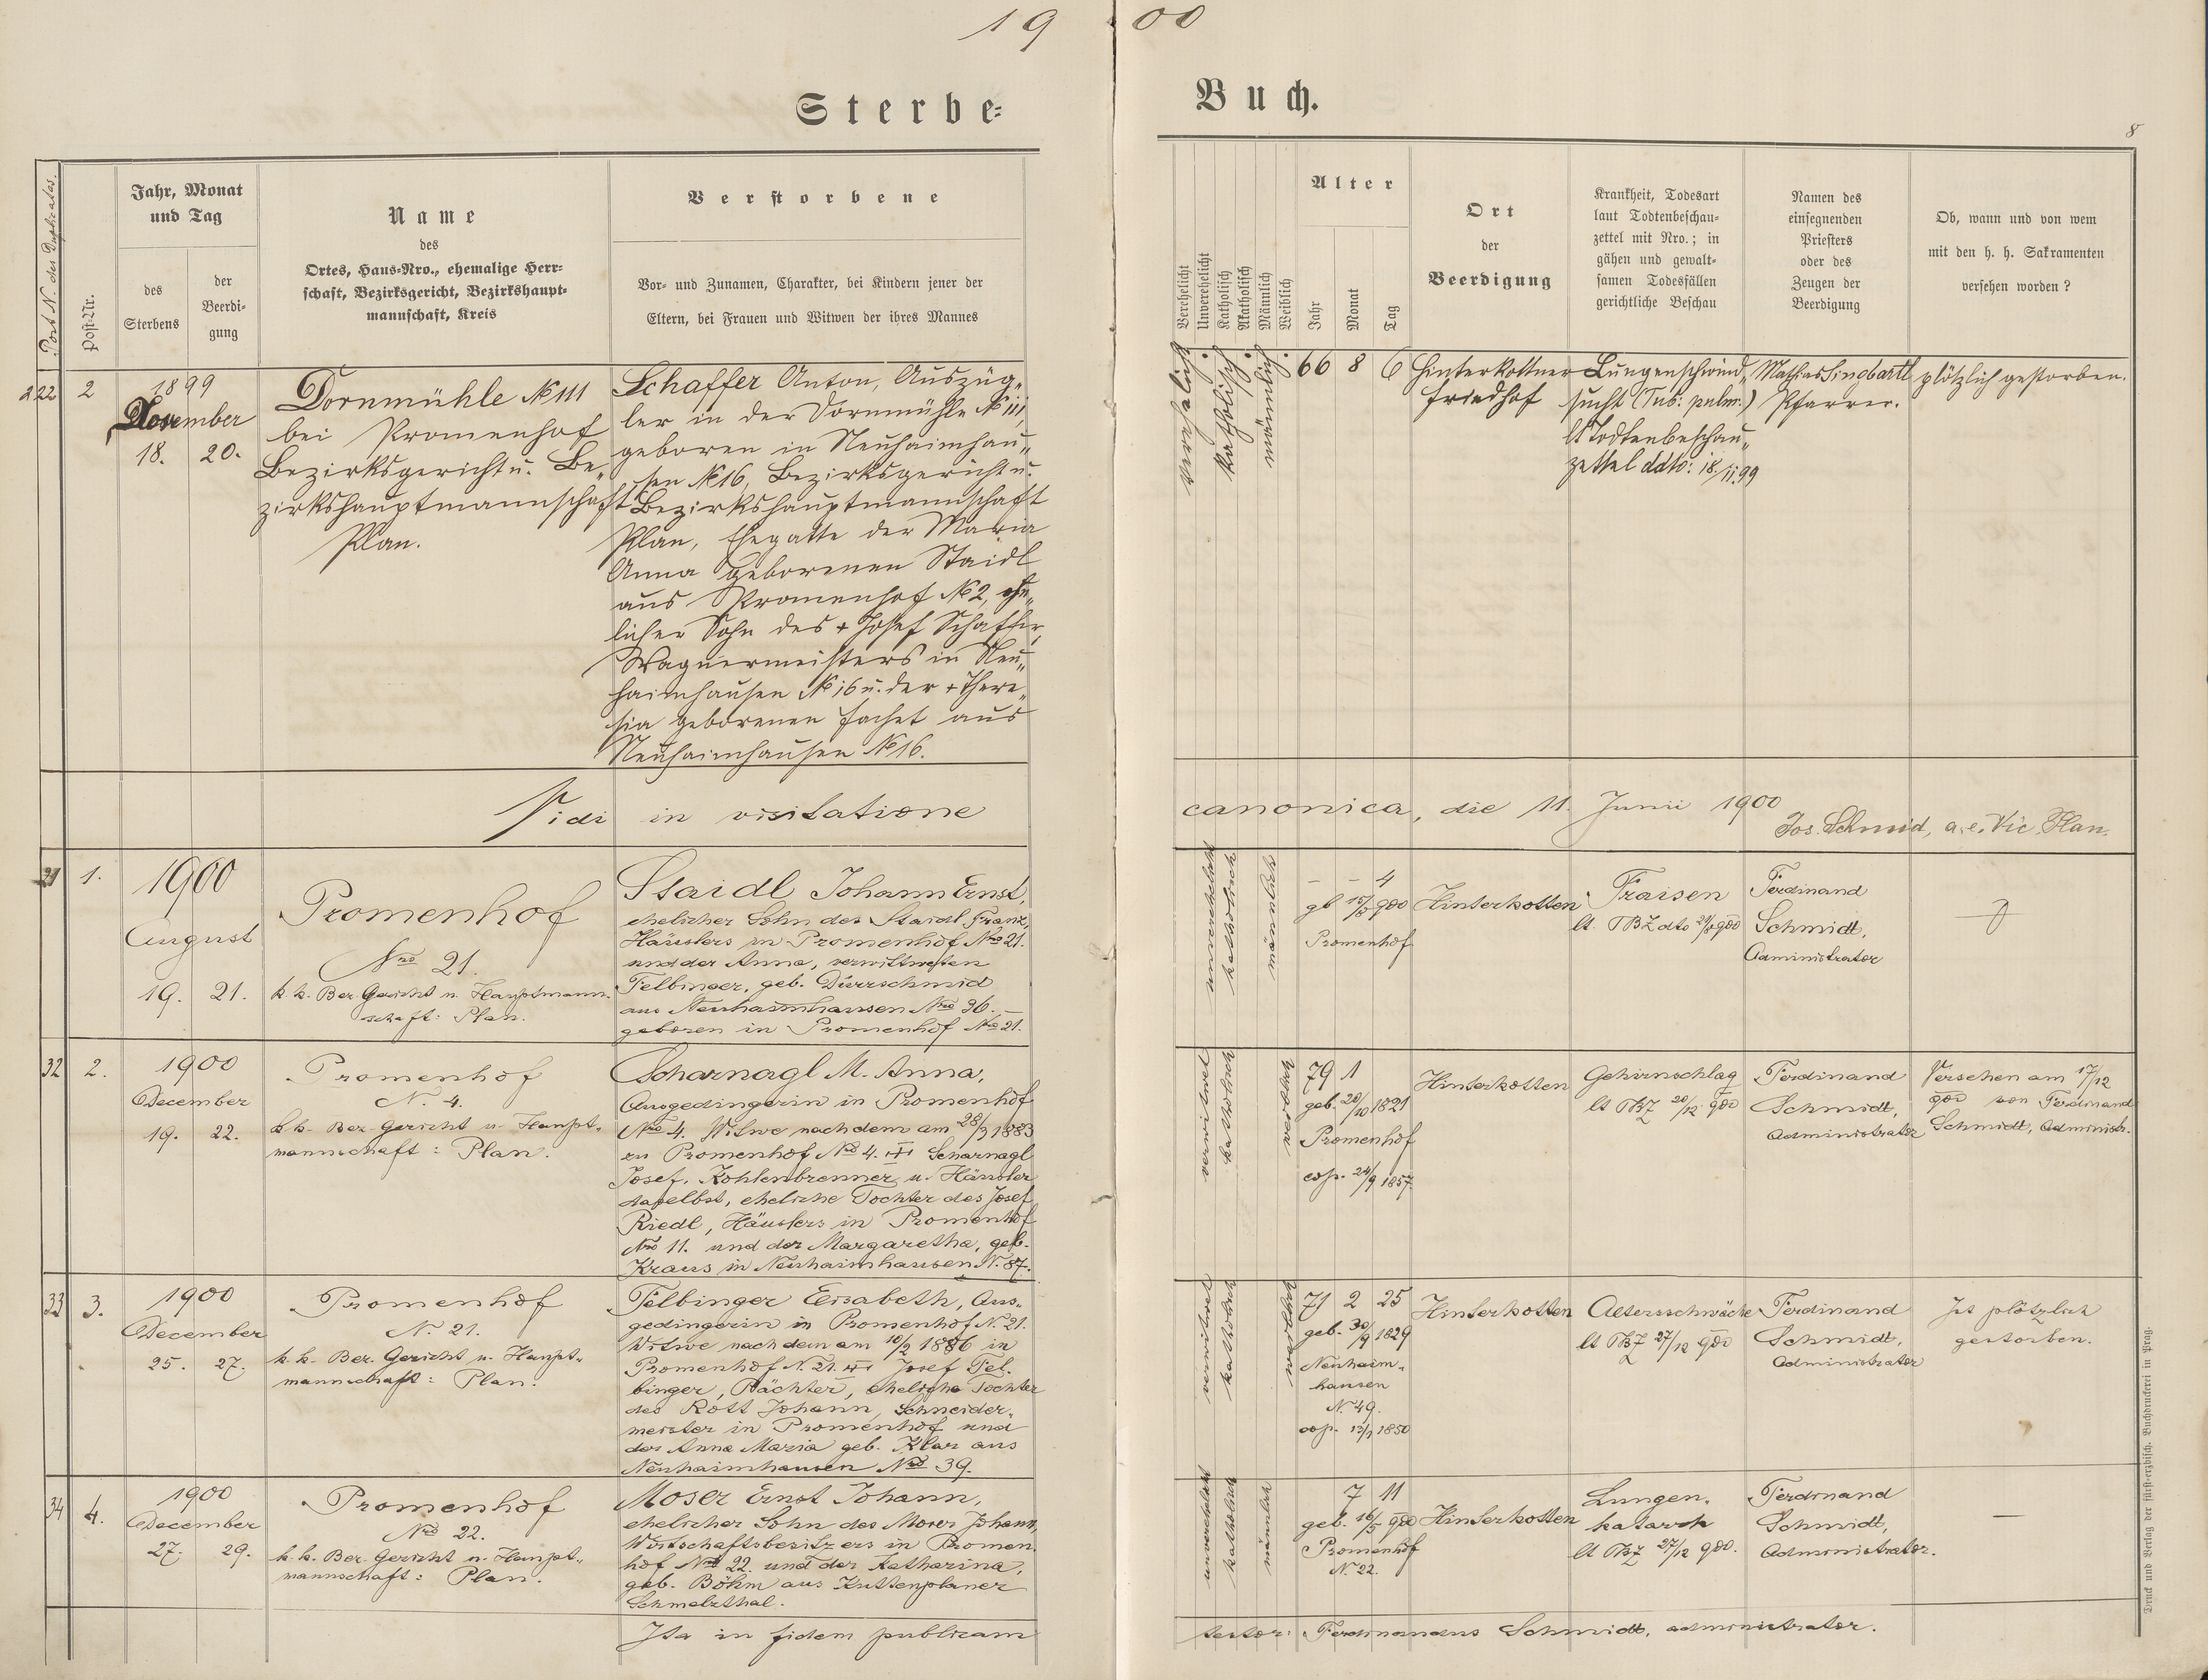 19 00
Sterbe= Buch.
8
Post N. des Duplicates.
Post=Nr.
Jahr, Monat
und Tag
des
Sterbens
der
Beerdi-
gung
Name
des
Ortes, Haus=Nro., ehemalige Herr=
schaft, Bezirksgericht, Bezirkshaupt=
mannschaft, Kreis
Verstorbene
Vor= und Zunamen, Charakter, bei Kindern jener der
Eltern, bei Frauen und Witwen der ihres Mannes
Verehelicht
Unverehelicht
Katholisch
Akatholisch
Männlich
Weiblich
Alter
Jahr
Monat
Tag
Ort
der
Beerdigung
Krankheit, Todesart
laut Todtenbeschau=
zettel mit Nro.; in
gähen und gewalt=
samen Todesfällen
gerichtliche Beschau
Namen des
einsegnenden
Priesters
oder des
Zeugen der
Beerdigung
Ob, wann und von wem
mit den h. h. Sakramenten
versehen worden?
222
2
1899
November
18. 20.
Dornmühle № 111
bei Promenhof
Bezirksgericht u. Be„
zirkshauptmannschaft
Plan.
Schaffer Anton, Auszüg„
ler in der Dornmühle № 111,
geboren in Neuhaimhau„
sen № 16, Bezirksgericht u.
Bezirkshauptmannschaft
Plan, Ehegatte der Maria
Anna geborenen Staidl
aus Promenhof № 2, ehe„
licher Sohn des + Josef Schaffer,
Wagnermeisters in Neu„
haimhausen № 16 u. der + There„
sia geborenen aus
Neuhaimhausen № 16.
verehelicht.
katholisch.
männlich.
66 8 6
Hinterkottner
Friedhof
Lungenschwind„
sucht (Tub: pulm:)
lt Todtenbeschau„
zettel ddto: 18./11.99
Mathias Singbartl
Pfarrer.
plötzlich gestorben.
Vidi in visitatione canonica, die 11. Junii 1900
Jos. Schmid, a. e. Vic. Plan.
31
1.
1900
August
19. 21.
Promenhof
Nro 21.
k. k. Bez. Gericht u. Hauptmann-
schaft: Plan.
Staidl Johann Ernst,
ehelicher Sohn des Staidl Franz,
Häuslers in Promenhof Nro 21.
und der Anna, verwittweten
Felbinger, geb. Dürrschmid
aus Neuhaimhausen Nro 36. –
geboren in Promenhof Nro 21.
unverehelicht
katholisch
männlich
– – 4
gb 15/8 900
Promenhof
Hinterkotten
Fraisen
lt. TBZ dto 21/8 900
Ferdinand
Schmidt,
Administrator
32
2.
1900
December
19. 22.
Promenhof
N. 4.
k. k. Bez. Gericht u. Haupt-
mannschaft: Plan.
Scharnagl M. Anna,
Ausgedingerin in Promenhof
Nro 4. Witwe nach dem am 28/3 1883
zu Promenhof Nro 4. Scharnagl
Josef, Kohlenbrenner u. Häusler
daselbst, eheliche Tochter des Josef
Riedl, Häuslers in Promenhof
Nro 11. und der Margaretha, geb.
Kraus in Neuhaimhausen N. 87.
verwitwet
katholisch
weiblich
79 1
geb. 20/10 1821
Promenhof
cop. 24/9 1857.
Hinterkotten
Gehirnschlag
lt TBZ 20/12 900
Ferdinand
Schmidt,
Administrator
Versehen am 17/12
900 von Ferdinand
Schmidt, Administr.
33
3.
1900
December
25. 27.
Promenhof
N. 21.
k. k. Bez. Gericht u. Haupt-
mannschaft: Plan.
Felbinger Elisabeth, Aus-
gedingerin in Promenhof N. 21.
Witwe nach dem am 10/2 1886 in
Promenhof N. 21. Josef Fel-
binger, Pächter, eheliche Tochter
des Rott Johann, Schneider-
meister in Promenhof und
der Anna Maria geb. Klar aus
Neuhaimhausen Nro 39.
verwitwet
katholisch
weiblich
71 2 25
geb. 30/9 1829
Neuhaim-
hausen
N. 49.
cop. 1850
Hinterkotten
Altersschwäche
lt TBZ 27/12 900
Ferdinand
Schmidt,
Administrator
Ist plötzlich
gestorben.
34
4.
1900
December
27. 29.
Promenhof
Nro 22.
k. k. Bez. Gericht u. Haupt-
mannschaft: Plan.
Moser Ernst Johann,
ehelicher Sohn des Moser Johann,
Wirtschaftsbesitzers in Promen-
hof Nro 22. und der Katharina,
geb. Böhm aus Kuttenplaner
Schmelzthal.
unverehelicht
katholisch
männlich
7 11
geb. 16/5 900
Promenhof
N. 22.
Hinterkotten
Lungen-
katarrh
lt TBZ 27/12 900.
Ferdinand
Schmidt,
Administrator.
—
Ita in fidem publicam testor: Ferdinandus Schmidt, administrator.
Druck und Verlag der fürst=erzbisch. Buchdruckerei in Prag.